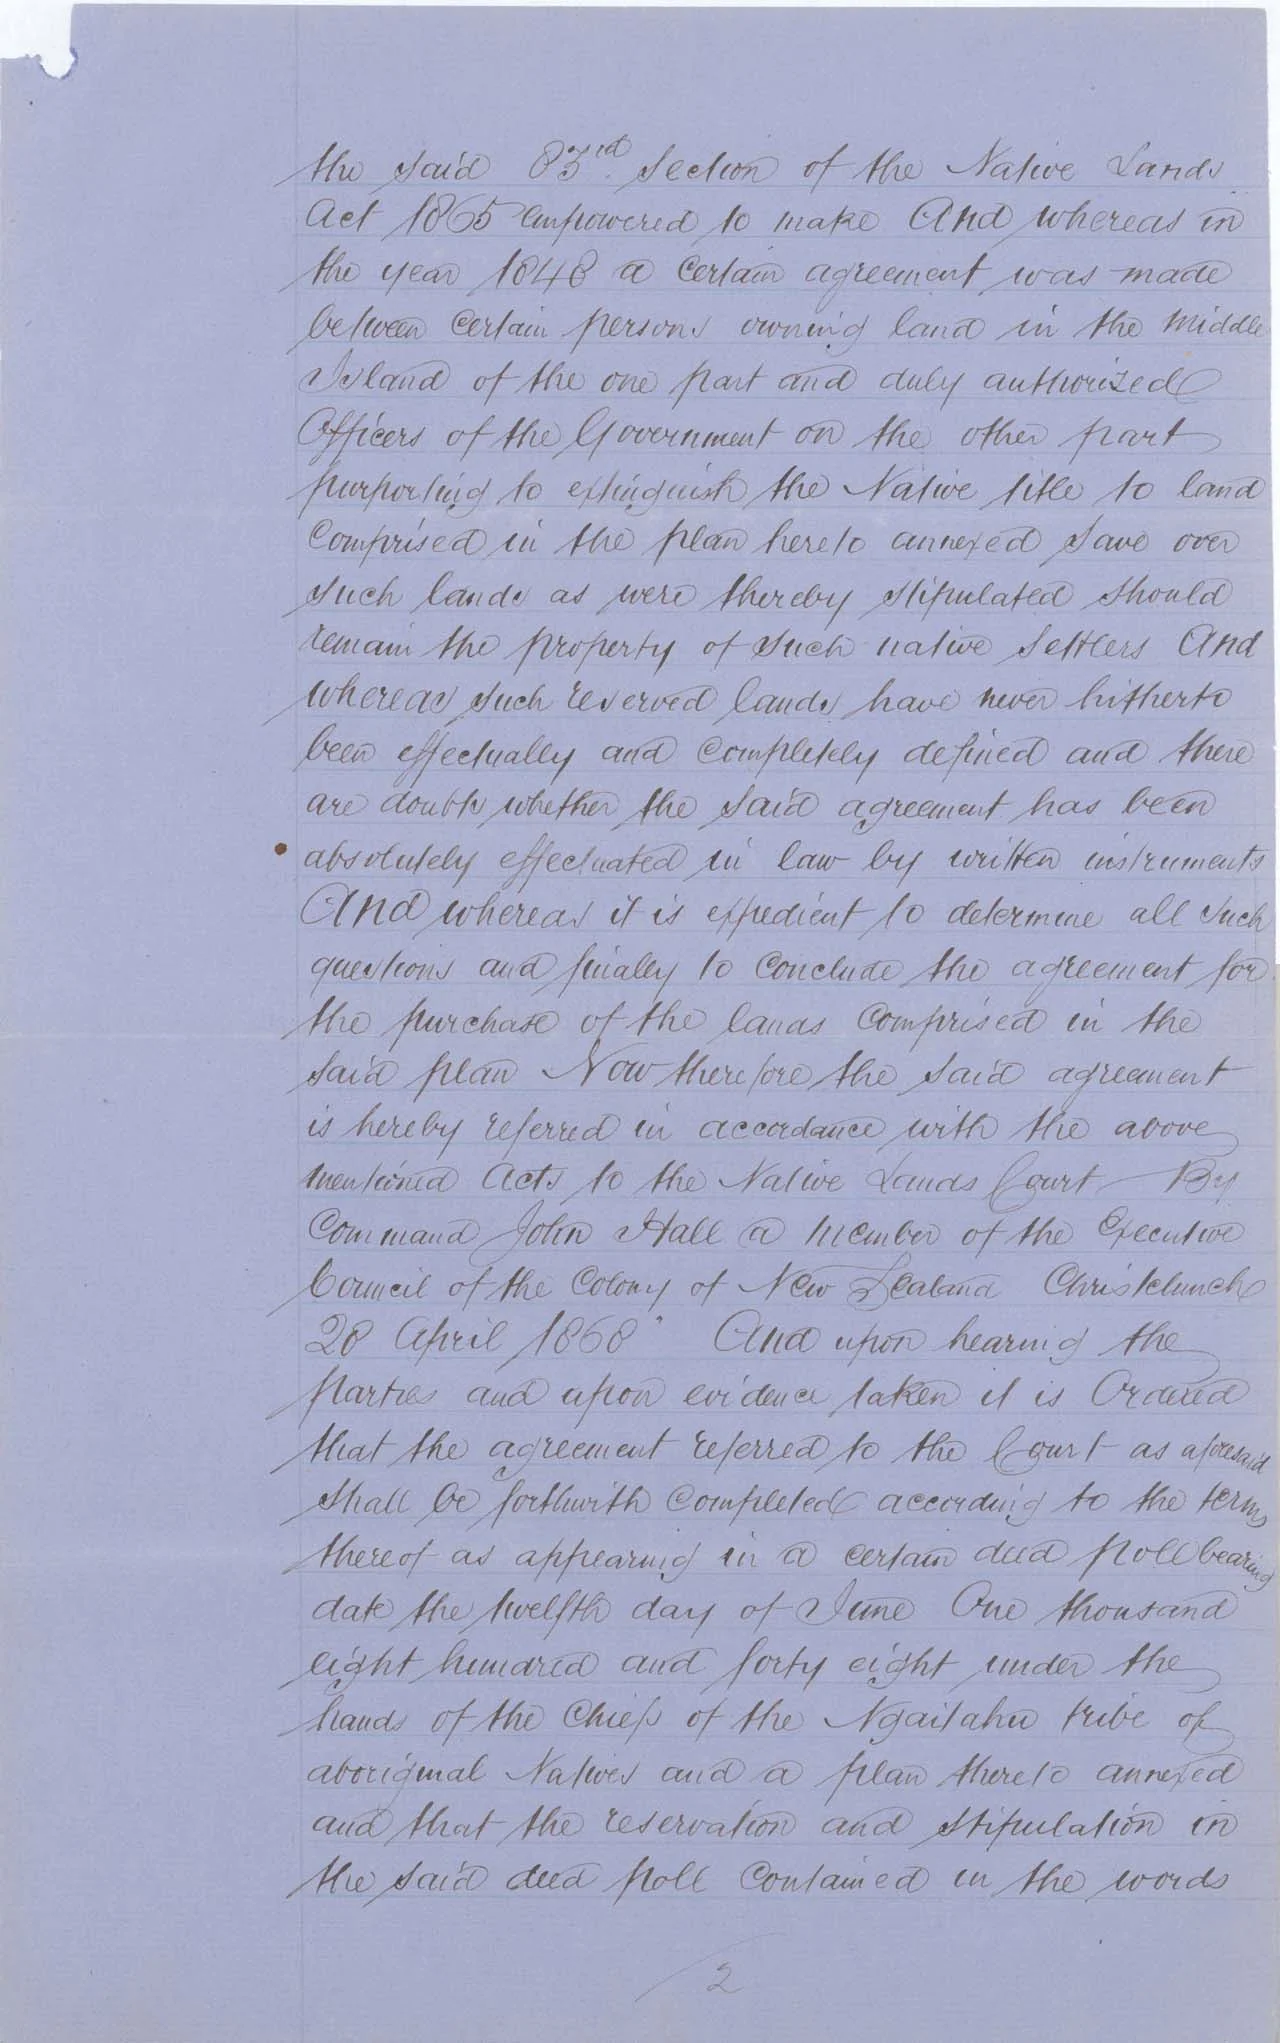 the said 83rd. Section of the Native Lands
Act 1865 empowered to make And whereas in
the year 1848 a Certain agreement was made
between Certain persons owning land in the Middle
Island of the one part and duly authorized
Officers of the Government on the other part
purporting to extinguish the Native title to land
Comprised in the plan hereto annexed Save over
such lands as were thereby stipulated should
remain the property of such native Settlers And
whereas such reserved lands have never hitherto
been effectually and completely defined and there
are doubts whether the said agreement has been
absolutely effectuated in law by written instruments
And whereas it is expedient to determine all such
questions and finaley to Conclude the agreement for
the purchase of the lands Comprised in the
said plan Now therefore the said agreement
is hereby referred in accordance with the above
mentioned Acts to the Native Lands Court By
Command John Hall a Member of the Executive
Council of the Colony of New Zealand Christchurch
28 April 1868" And upon hearing the
parties and upon evidence taken it is Ordered
that the agreement referred to the Court as aforesaid
shall be forthwith Completed according to the terms
thereof as appearing in a certain deed poll bearing
date the twelfth day of June One thousand
eight hundred and forty eight under the
hands of the Chiefs of the Ngaitahu tribe of
aboriginal Natives and a plan thereto annexed
and that the reservation and stipulation in
the said deed poll Contained in the words
2